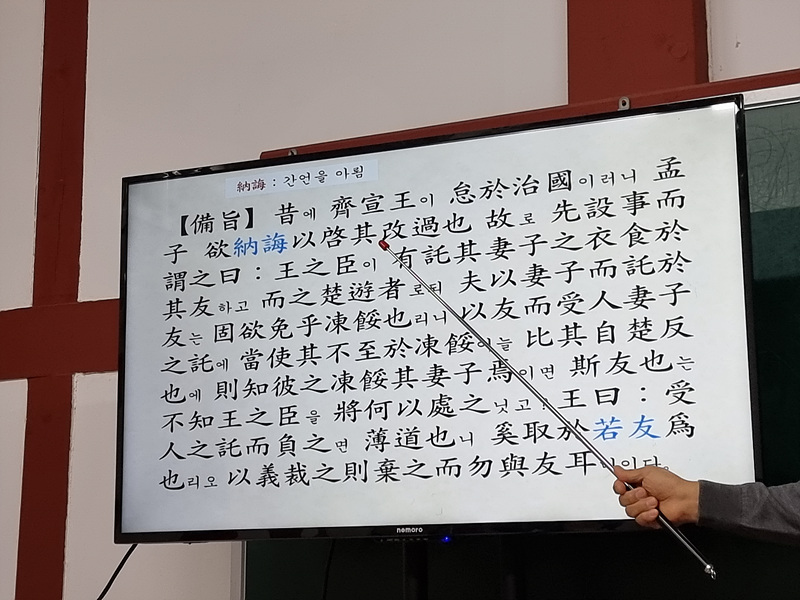 納誨 : 간언을 아룀
【備旨】 昔에 齊宣王이 怠於治國이러니 孟
子 欲納誨以啓其改過也 故로 先設事而
謂之曰 : 王之臣이 有託其妻子之衣食於
其友하고 而之楚遊者로되 夫以妻子而託於
友는 固欲免乎凍餒也리니 以友而受人妻子
之託에 當使其不至於凍餒어늘 比其自楚反
也에 則知彼之凍餒其妻子焉이면 斯友也는
不知王之臣을 將何以處之닛고? 王曰 : 受
人之託而負之면 薄道也니 奚取於若友爲
也리오 以義裁之則棄之而勿與友耳이다.
nemoro